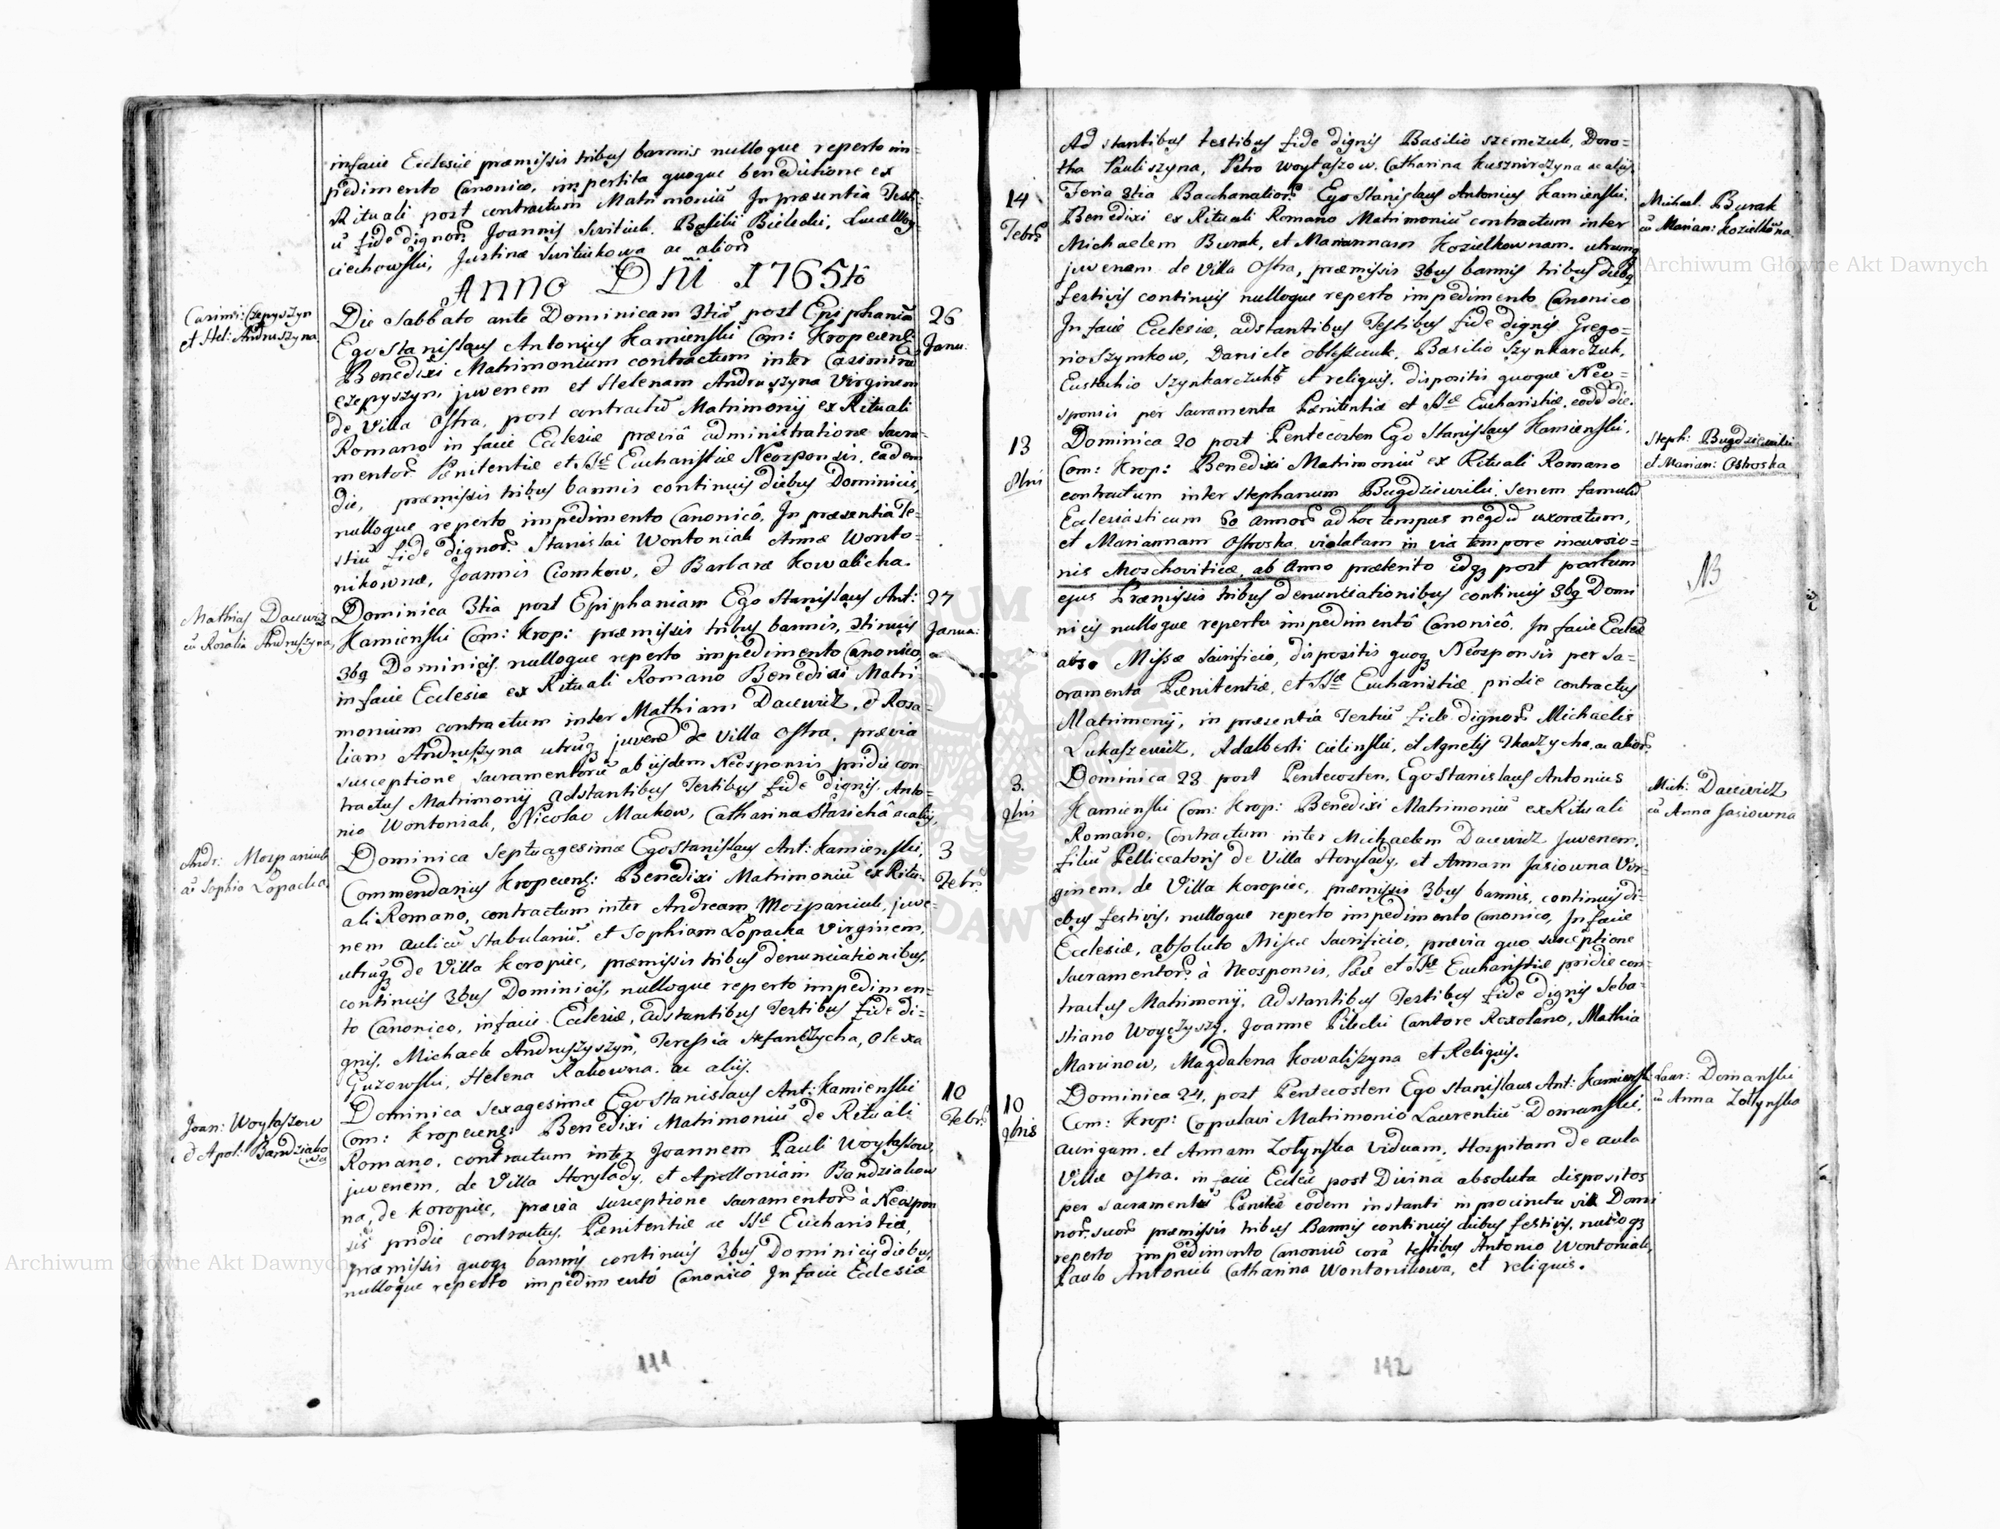 in facie Ecclesiæ præmissis tribus bannis nulloque reperto im=
pedimento Canonico, impertita quoque benedictione ex
Rituali post contractum Matrimoniū In præsentia Testi=
ū fide dignor. Joannis Switiuk, Basilii Bielecki, Lucæ Woy=
ciechowski, Justinæ Switiukowa ac alior.
Anno Dni 1765to
Casimi: Czepyszyn
et Hel: Andruszyna
26
Janu:
Die Sabbato ante Dominicam 3tia post Epiphania
Ego Stanislaus Antonius Kamienski Com: Kropecens:
Benedixi Matrimonium contractum inter Casimirū
Czepyszyn, juvenem et Helenam Andruszyna Virginem
de Villa Ostra, post contractū Matrimonij ex Rituali
Romano in facie Ecclesiæ prævia administratione Sacra=
mentor. Pænitentiæ et SSæ Eucharistiæ Neosponsis, eadem
die, præmissis tribus bannis continuis diebus Dominicis,
nulloque reperto impedimento Canonicô, In præsentia Te=
stiū fide dignor. Stanislai Wontoniak Annæ Wonto=
nikownæ, Joannis Ciomkow, & Barbaræ Kowalicha.
Mathias Dacewicz
cū Rosalia Andruszyna,
27
Janua:
Dominica 3tia post Epiphaniam Ego Stanislaus Ant:
Kamienski Com: Krop: præmissis tribus bannis, 3tinuis
3bq Dominicis, nulloque reperto impedimento Canonico
in facie Ecclesiæ ex Rituali Romano Benedixi Matri
monium contractum inter Mathiam Dacewicz, & Rosa=
liam Andruszyna utrūq juvenē de Villa Ostra, prævia
susceptione sacramentorū ab ijsdem Neosponsis pridie con=
tractus Matrimonij adstantibus Testibus fide dignis, Anto=
nio Wontoniak, Nicolao Mackow, Catharina Starichâ ac alijs,
Andr: Mospaniuk
cū Sophia Lopacka,
3
Febr:
Dominica Septuagesimæ Ego Stanislaus Ant: Kamienski,
Commendarius Kropecens: Benedixi Matrimoniū ex Ritu=
ali Romano, contractum inter Andream Mospaniuk, juve=
nem aulicū stabulariū, et Sophiam Lopacka Virginem,
utrūq de Villa Koropiec, præmissis tribus denunciationibus,
continuis 3bus Dominicis, nulloque reperto impedimen=
to Canonico, in facie Ecclesiæ, adstantibus Testibus fide di=
gnis, Michaele Andruszyszyn, Teressia Stefanczycha, Olexa
Guzowski, Helena Rakowna, ac alijs.
Joan: Woytaszow
& Apol: Bandziako
wna
10
Febr:
Dominica Sexagesimæ Ego Stanislaus Ant: Kamienski
Com: Kropecens: Benedixi Matrimoniū de Rituali
Romano, contractum inter Joannem Pauli Woytassow,
juvenem, de Villa Horylady, et Apolloniam Bandziakow
na, de Koropiec, prævia susceptione sacramentor. à Neospon
sis pridie contractus, Pænitentiæ ac SSæ Eucharistiæ,
præmissis quoq bannis continuis 3bus Dominicis diebus,
nulloque reperto impedimentô Canonicô In facie Ecclesiæ
111
Adstantibus testibus fide dignis Basilio Szemczuk, Doro=
tha Pauliszyna, Petro Woytaszow, Catharina Kusznirczyna ac alijs
14
Febr:
Michael. Burak
cū Marian: Kozielkōna
Feria 3tia Bacchanalior. Ego Stanislaus Antonius Kamienski,
Benedixi ex Rituali Romano Matrimoniū contractum inter
Michaelem Burak, et Mariannam Kozielkownam, utrumq
juvenem de Villa Ostra, præmissis 3bus bannis tribus diebq
festivis continuis nulloque reperto impedimento Canonico
In facie Ecclesiæ, adstantibus Testibus fide dignis Grego=
rio Szymkow, Daniele Obleszczuk, Basilio Szynkarczuk,
Eustachio Szynkarczuk et reliquis, dispositis quoque Neo=
sponsis per sacramenta Pænitentiæ et SSæ Eucharistiæ, eodē die.
13
8bris
Steph: Bugdziewicki
et Marian: Ostroska
Dominica 20 post Pentecosten Ego Stanislaus Kamienski,
Com: Krop: Benedixi Matrimoniū ex Rituali Romano
contractum inter Stephanum Bugdziewicki, Senem famulū
Ecclesiasticum 60 annor. ad hoc tempus neqdū uxoratum,
et Mariannam Ostroska, violatam in via tempore incursio=
nis Moschoviticæ, ab Anno præterito idq post partum
NB
ejus Præmissis tribus denunciationibus continuis 3bq Domi
nicis nulloque reperto impedimentô Canonicô. In facie Eccleæ
Missæ sacrificio, dispositis quoq Neosponsis per Sa=
cramenta Pænitentiæ, et SSæ Eucharistiæ pridie contractus
Matrimonij, in præsentia Testiū fide dignor. Michaelis
Lukaszewicz, Adalberti Cielinski, et Agnetis Tkaczycha, ac alior.
3.
9bris
Mich: Dacewicz
cū Anna Jasiowna
Dominica 23 post Pentecosten, Ego Stanislaus Antonius
Kamienski Com: Krop: Benedixi Matrimoniū ex Rituali
Romano, Contractum inter Michaelem Dacewicz Juvenem,
filiū Pelliccatoris de Villa Horylady, et Annam Jasiowna Vir=
ginem, de Villa Koropiec, præmissis 3bus bannis, continuis di=
ebus festivis, nulloque reperto impedimento Canonico, In facie
Ecclesiæ, absoluto Missæ Sacrificio, prævia quo susceptione
sacramentor. à Neosponsis, Pææ et SSæ Eucharistiæ pridie con=
tractus Matrimonij, adstantibus Testibus fide dignis Seba=
stiano Woyczyszyn, Joanne Pilecki Cantore Roxolano, Mathia
Marinow, Magdalena Kowaliszyna et Reliquis.
10
9bris
Laur: Domanski
cū Anna Zolynska
Dominica 24, post Pentecosten Ego Stanislaus Ant: Kamienski
Com: Krop: Copulavi Matrimonio Laurentiū Domanski,
aurigam, et Annam Zolynska Viduam, Hospitam de aula
Villæ Ostra, in facie Eccleæ post Divina absoluta dispositos
per sacramentū Pænitæ eodem instanti in procinctu Domi
nor. suor. præmissis tribus Bannis continuis diebus festivis, nulloq
reperto impedimento Canonicô corā testibus Antonio Wontoniak,
Paulo Antoniuk Catharina Wontonikowa, et reliquis.
112
Archiwum Główne Akt Dawnych
Archiwum Główne Akt Dawnych